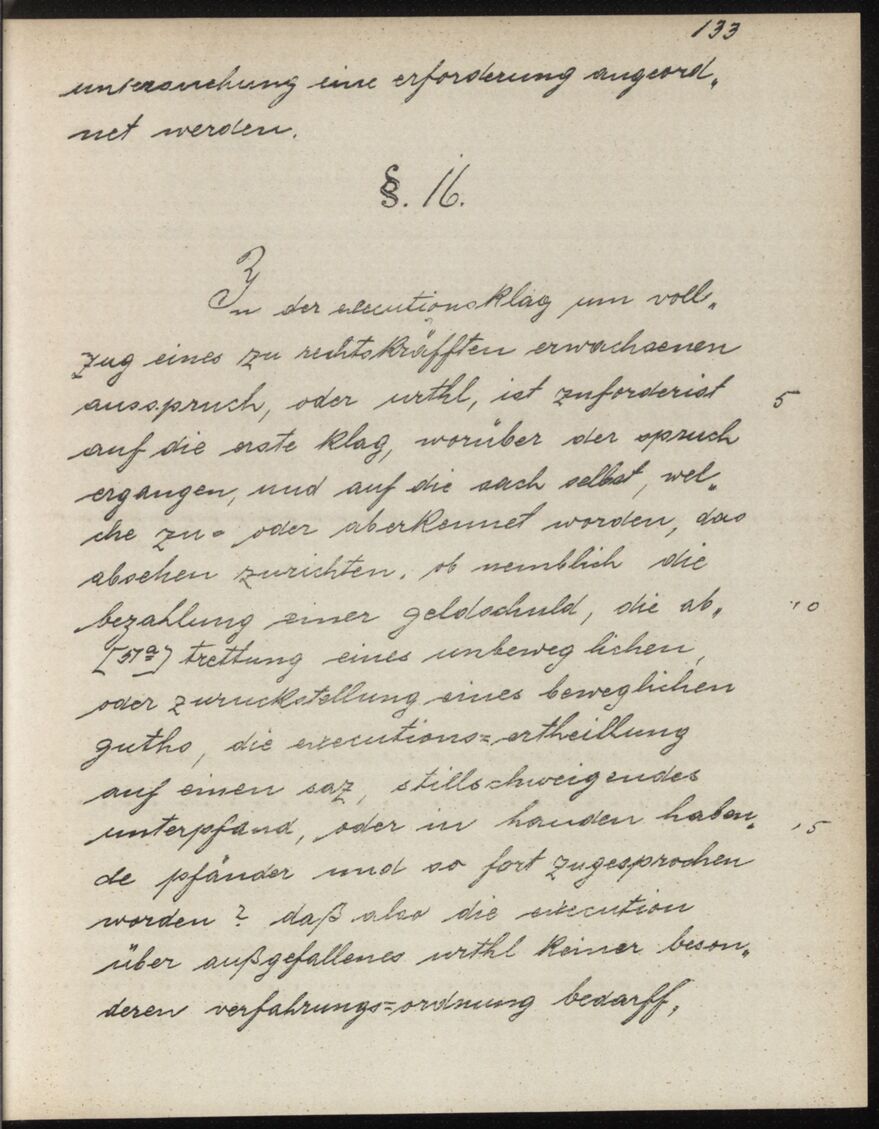 133
untersuchung eine erforderung angeord„
net werden.
§. 16.
In der executionsklag um voll„
zug eines zu rechtskräfften erwachsenen
ausspruch, oder urthl, ist zuforderist 5
auf die erste klag, worüber der spruch
ergangen, und auf die sach selbst, wel„
che zu= oder aberkennet worden, das
absehen zurichten. ob nemblich die
bezahlung einer geldschuld, die ab„ 10
[51a] trettung eines unbeweglichen,
oder zuruckstellung eines beweglichen
guths, die executions=ertheillung
auf einen saz, stillschweigendes
unterpfand, oder in handen haben„ 15
de pfänder und so fort zugesprochen
worden? daß also die execution
über außgefallenes urthl keiner beson„
deren verfahrungs=ordnung bedarff,